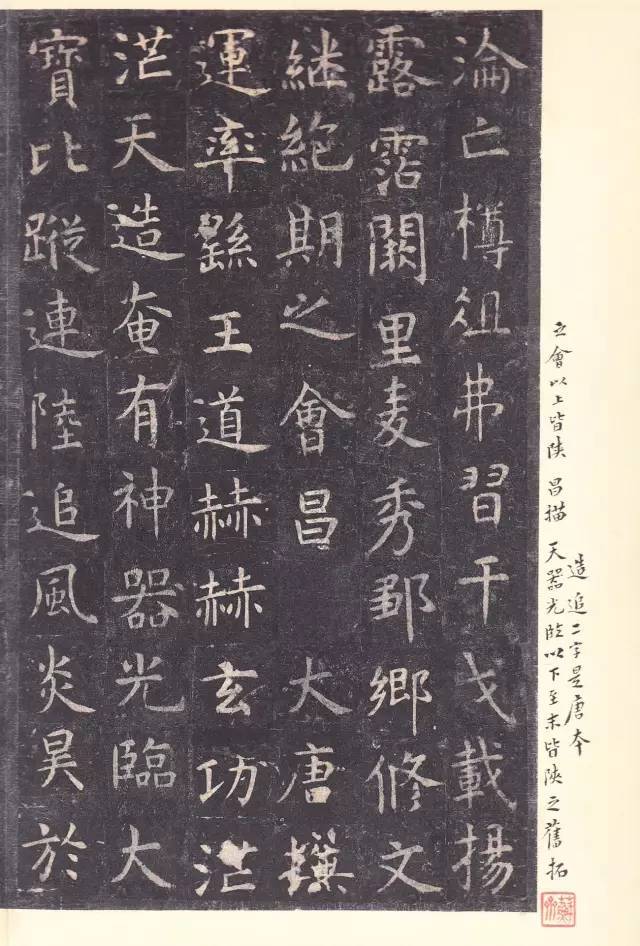 造追二字是唐本
之會以上皆陝 昌描 天器光臨以下至末皆陝之舊拓
淪亡樽俎弗習干戈載揚
露霑闕里麦秀鄒鄉脩文
継絶期之會昌 大唐撰
運率繇王道赫赫玄功茫
茫天造奄有神器光臨大
寶比蹤連陸追風炎昊於